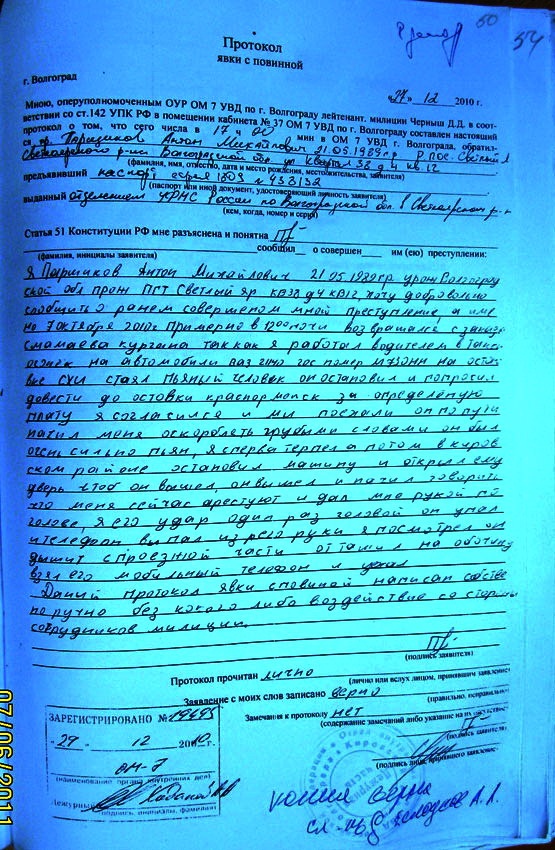 50
54
Протокол
явки с повинной
г. Волгоград
«27» 12 2010 г.
Мною, оперуполномоченным ОУР ОМ 7 УВД по г. Волгограду лейтенант. милиции Черныш Д.Д. в соот-
ветствии со ст.142 УПК РФ в помещении кабинета № 37 ОМ 7 УВД по г. Волгограду составлен настоящий
протокол о том, что сего числа в 17 ч 00 мин в ОМ 7 УВД г. Волгограда, обратил-
ся гр. Паршиков Антон Михайлович 21.05.1989гр
Светлоярского р-на Волгоградской обл.
(фамилия, имя, отчество, дата и место рождения, местожительства, заявителя)
предъявивший паспорт серия
(паспорт или иной документ, удостоверяющий личность заявителя)
выданный отделением УФМС России по Волгоградской обл. в Светлоярском р-н
(кем, когда, номер и серия)
Статья 51 Конституции РФ мне разъяснена и понятна
сообщил о совершен им (ею) преступлении:
(фамилия, инициалы заявителя)
Я Паршиков Антон Михайлович 21 05 1989гр урож Волгоград
ской обл прож ПГТ Светлый яр хочу добровольно
сообщить о ранем совершеном мной преступление а име
но 7 октября 2010г Примерно в 1200 ночи возвращался с заказа
смамаева кургана так как я работал водителем в такси
на автомобили ваз гос номер на остан
вке стаял пьяный человек он остановил и попросил
довести до оставки красноармейск за определёную
плату я согласился и мы поехали он по пути
начил меня оскороблеть грубыми словами он был
очень сильно пьян, я сперва терпел а потом в киров
ском районе остановил машину и открыл ему
дверь чтоб он вышел, он вышел и начил говорить
что меня сейчас арестуют и дал мне рукой по
голове, я его удар один раз головой он упал
ителефон выпал из рего руки я посмотрел он
дышит с проезжной части оттащил на обочину
взял его мобильный телефон и уехал
Даный протокол явки сповиной написан собстве
норучно без какого либо воздействие со стороны
сотрудников милиции.
(подпись заявителя)
Протокол прочитан лично
(лично или вслух лицом, принявшим заявление
Заявление с моих слов записано верно
(правильно, неправильно
Замечания к протоколу нет
(содержание замечаний либо указание на их отсутствие
(подпись заявителя
(подпись лица, принявшего заявление
ЗАРЕГИСТРИРОВАНО №
«29» 12 2010г.
ОМ-7
(наименование органа внутренних дел)
Дежурный
подпись, инициалы, фамилия
копия верна
07/06/2011